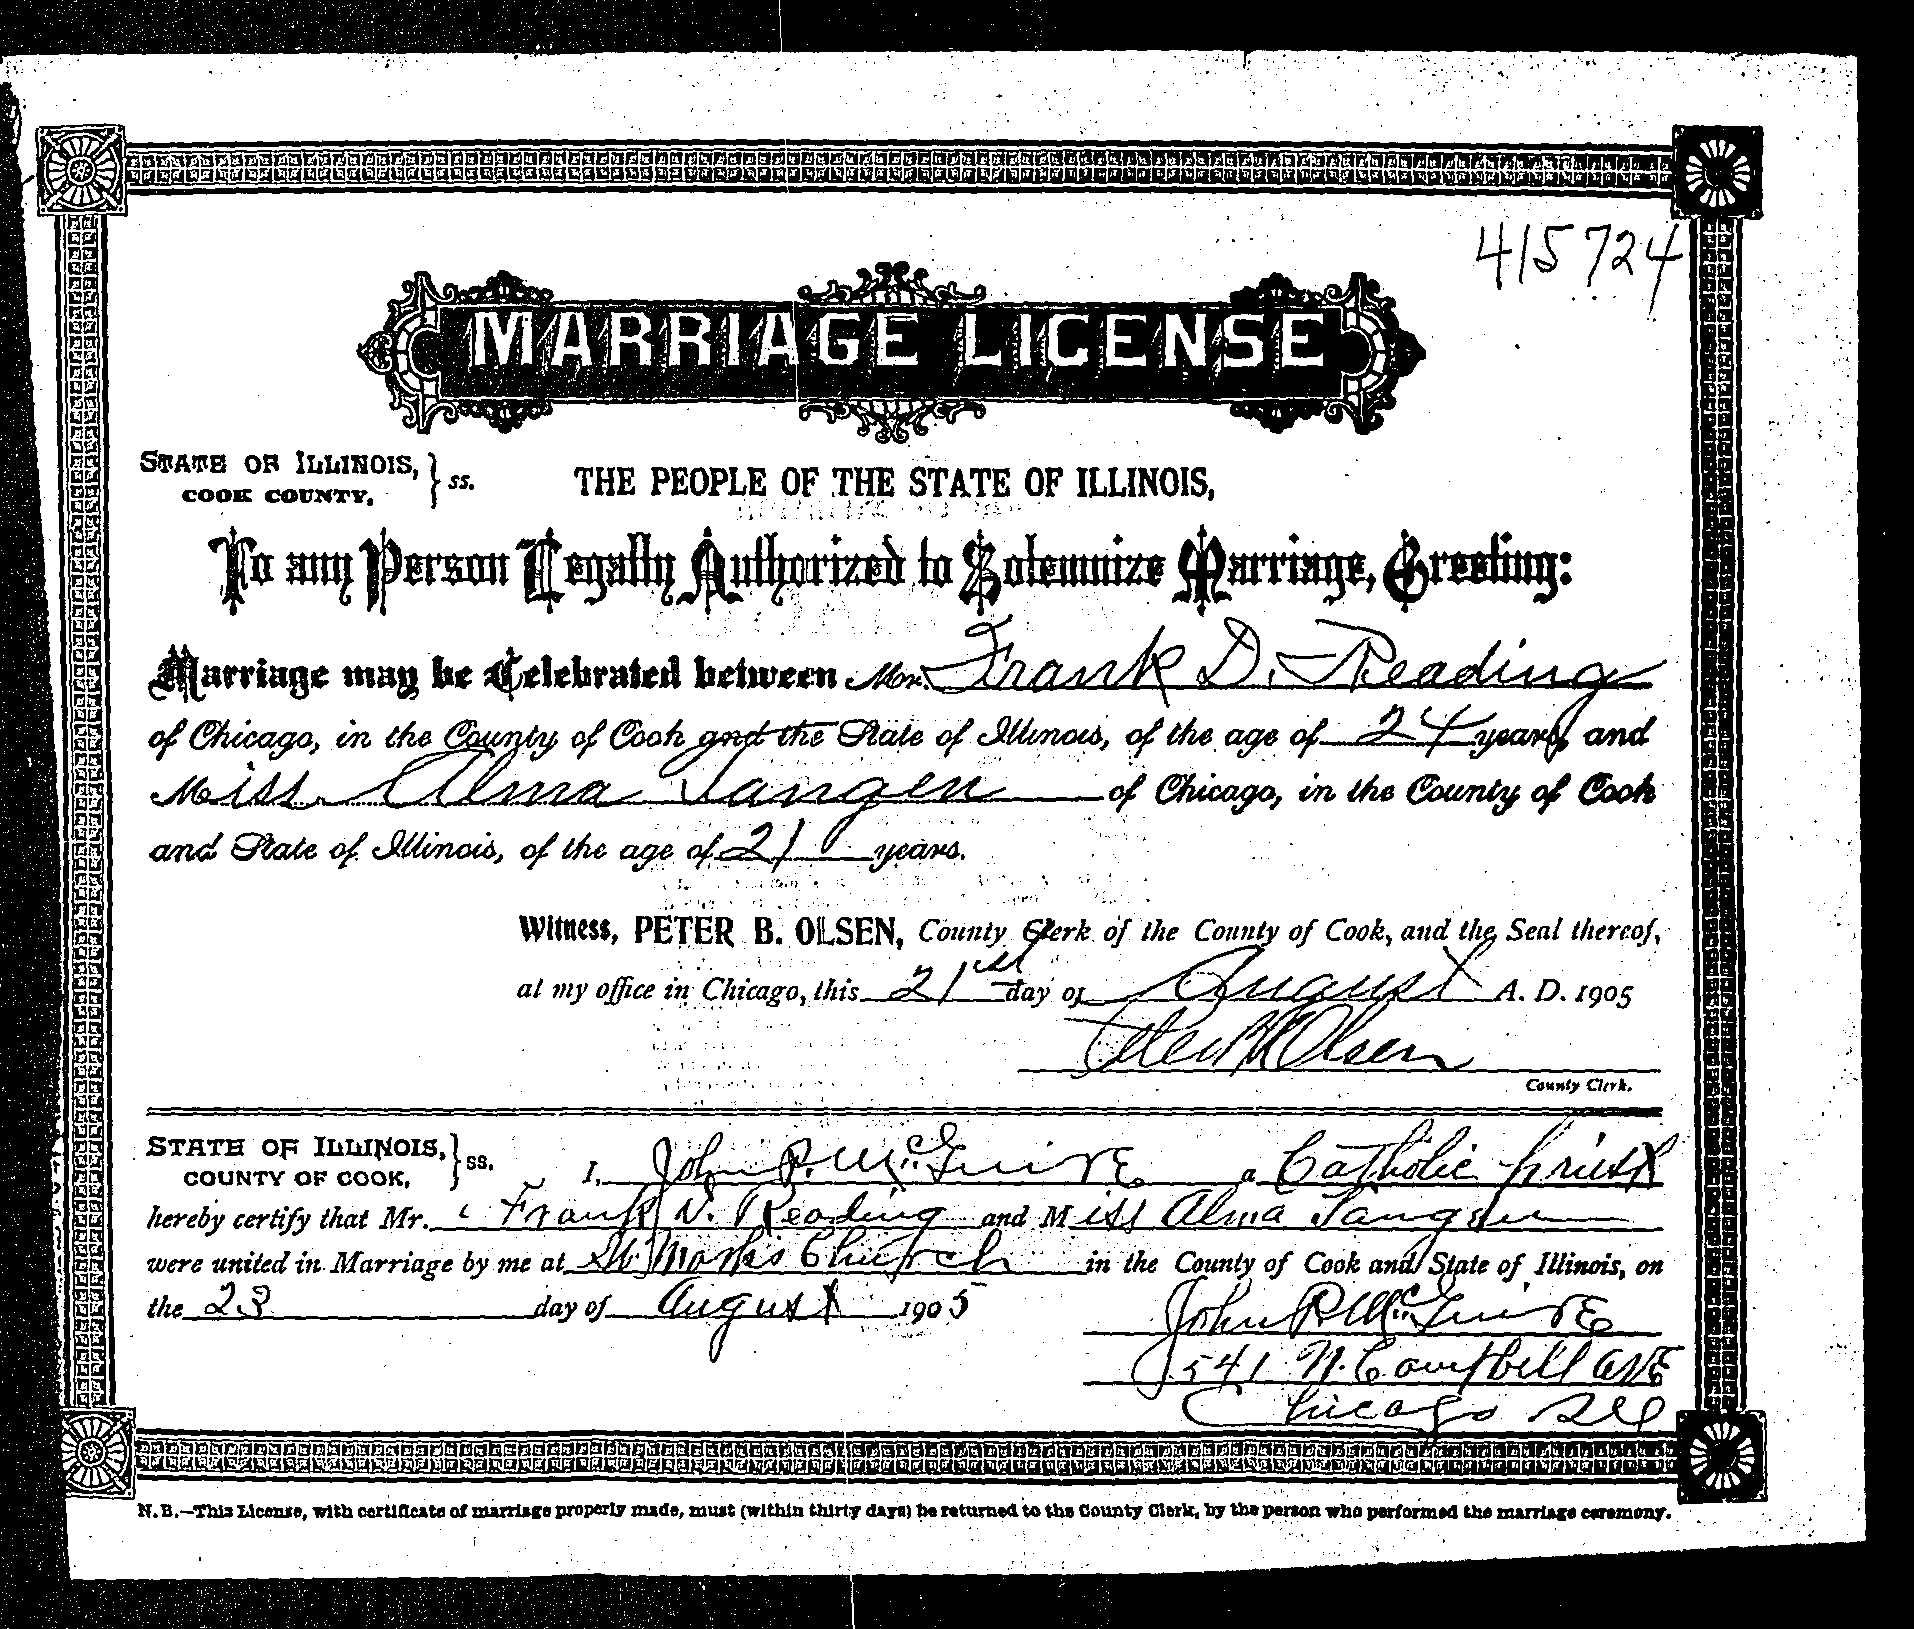 415724
MARRIAGE LICENSE
STATE OF ILLINOIS, } ss.
COOK COUNTY.
THE PEOPLE OF THE STATE OF ILLINOIS,
To any Person Legally Authorized to Solemnize Marriage, Greeting:
Marriage may be Celebrated between Mr. Frank D. Reading
of Chicago, in the County of Cook and the State of Illinois, of the age of 24 years, and
Miss Alma Tangen of Chicago, in the County of Cook
and State of Illinois, of the age of 21 years.
Witness, PETER B. OLSEN, County Clerk of the County of Cook, and the Seal thereof,
at my office in Chicago, this 21st day of August A. D. 1905
Peter B Olsen
County Clerk.
STATE OF ILLINOIS, } ss.
COUNTY OF COOK,
I, John P. McGuire a Catholic priest
hereby certify that Mr. Frank Reading and Miss Alma Tangen
were united in Marriage by me at St Mark's Church in the County of Cook and State of Illinois, on
the 23 day of August 1905
John P McGuire
541 N. Campbell Ave
Chicago Ill
N. B.—This License, with certificate of marriage properly made, must (within thirty days) be returned to the County Clerk, by the person who performed the marriage ceremony.